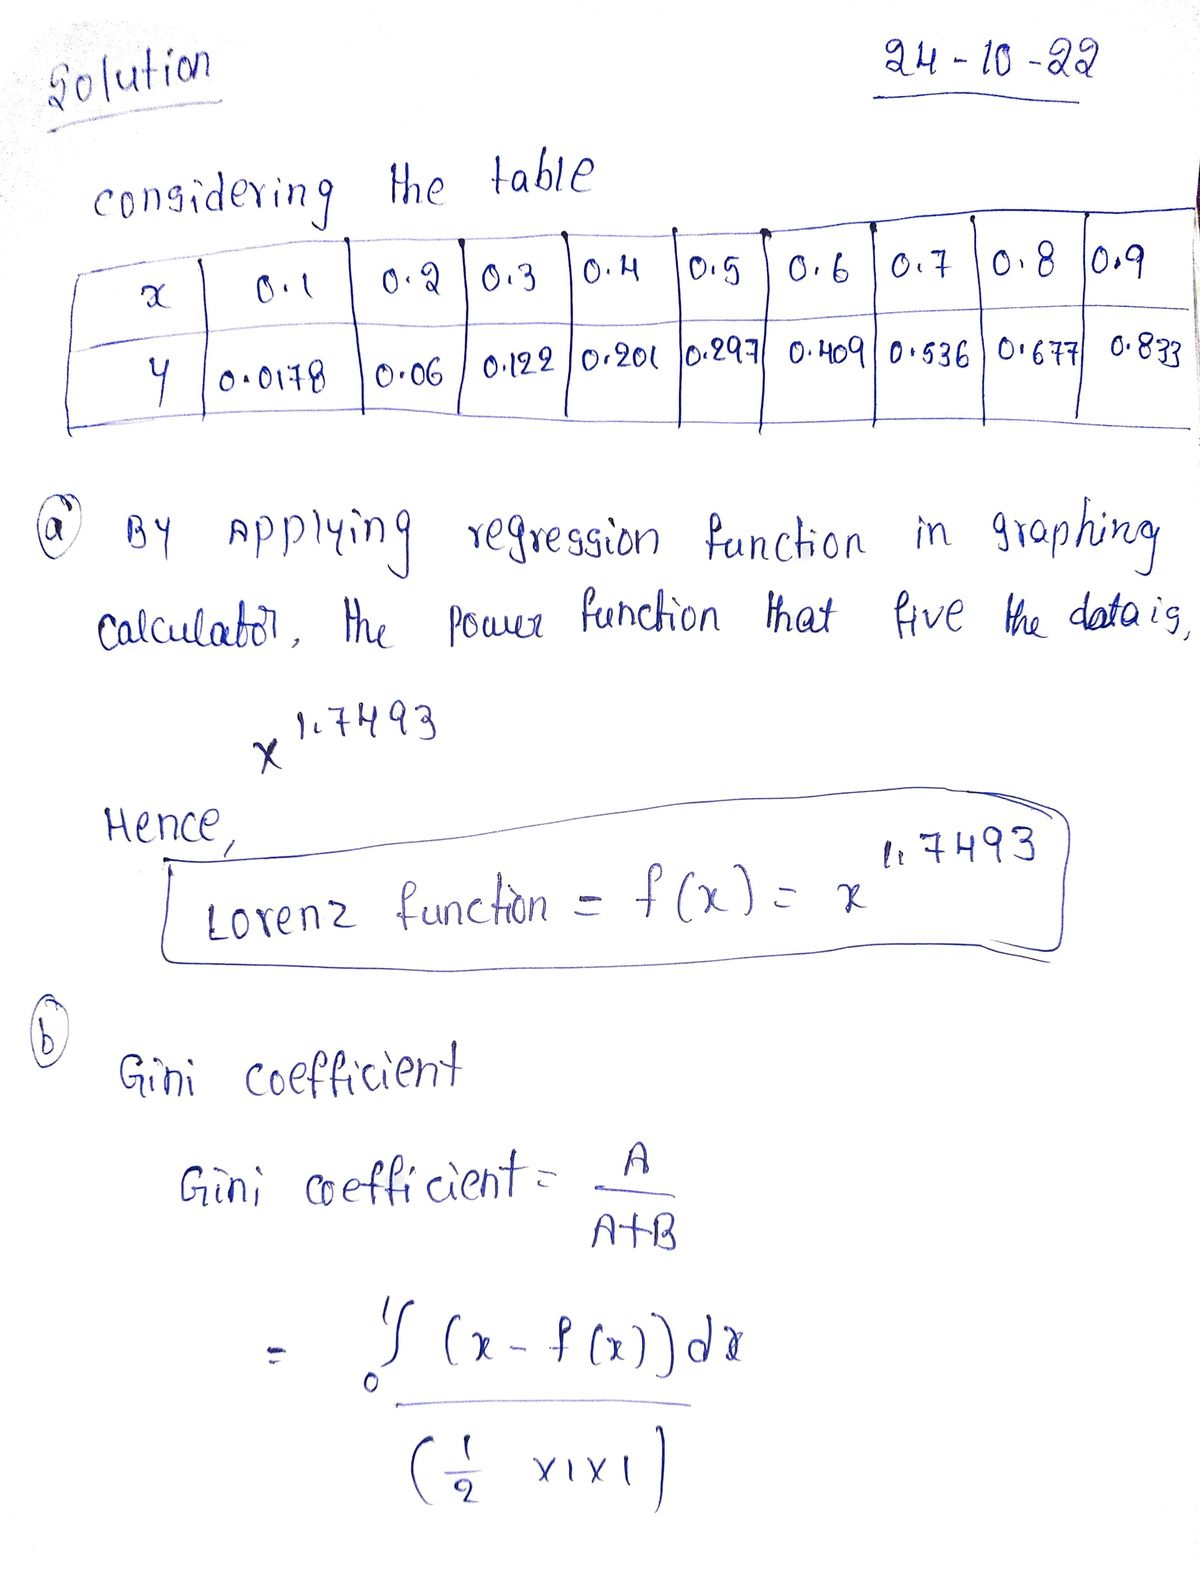 Solution
24-10-22
considering the table
x 0.1 0.2 0.3 0.4 0.5 0.6 0.7 0.8 0.9
y 0.0178 0.06 0.122 0.201 0.297 0.409 0.536 0.677 0.833
(a) By Applying regression function in graphing
calculator, the power function that five the data is,
x^1.7493
Hence,
Lorenz function = f(x) = x^1.7493
(b)
Gini coefficient
Gini coefficient = A/(A+B)
= ₀¹∫ (x - f(x)) dx
(1/2 x1x1)